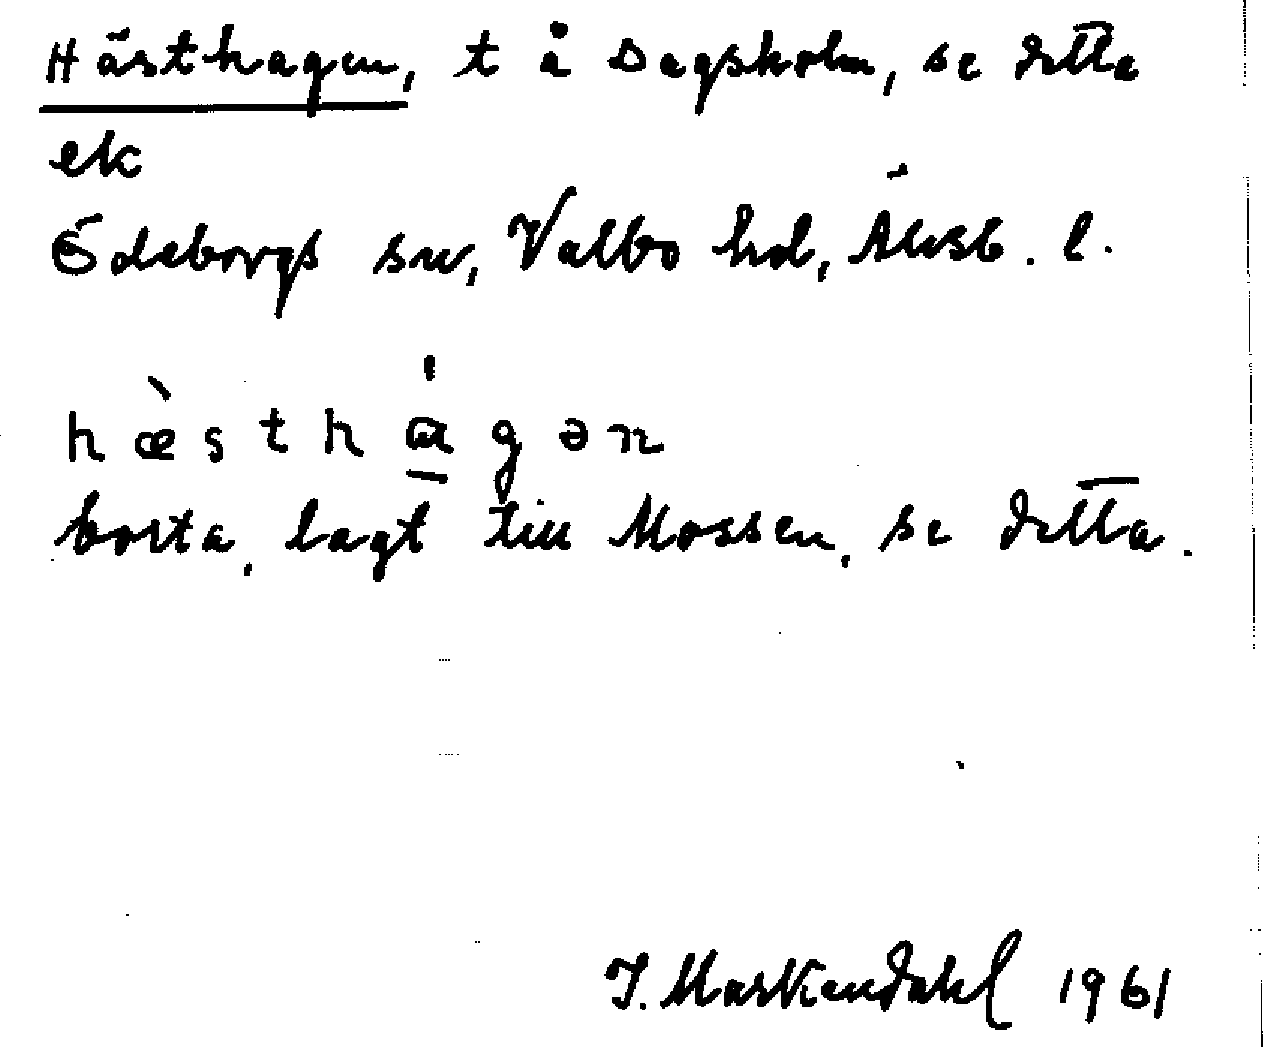 Hästhagen, t å Dagsholm, se detta
ek
Ödeborgs sn, Valbo hd, Älvsb. l.
hæ̀sthɑ̲́gən
borta, lagt till Mossen, se detta.
J. Markendahl 1961